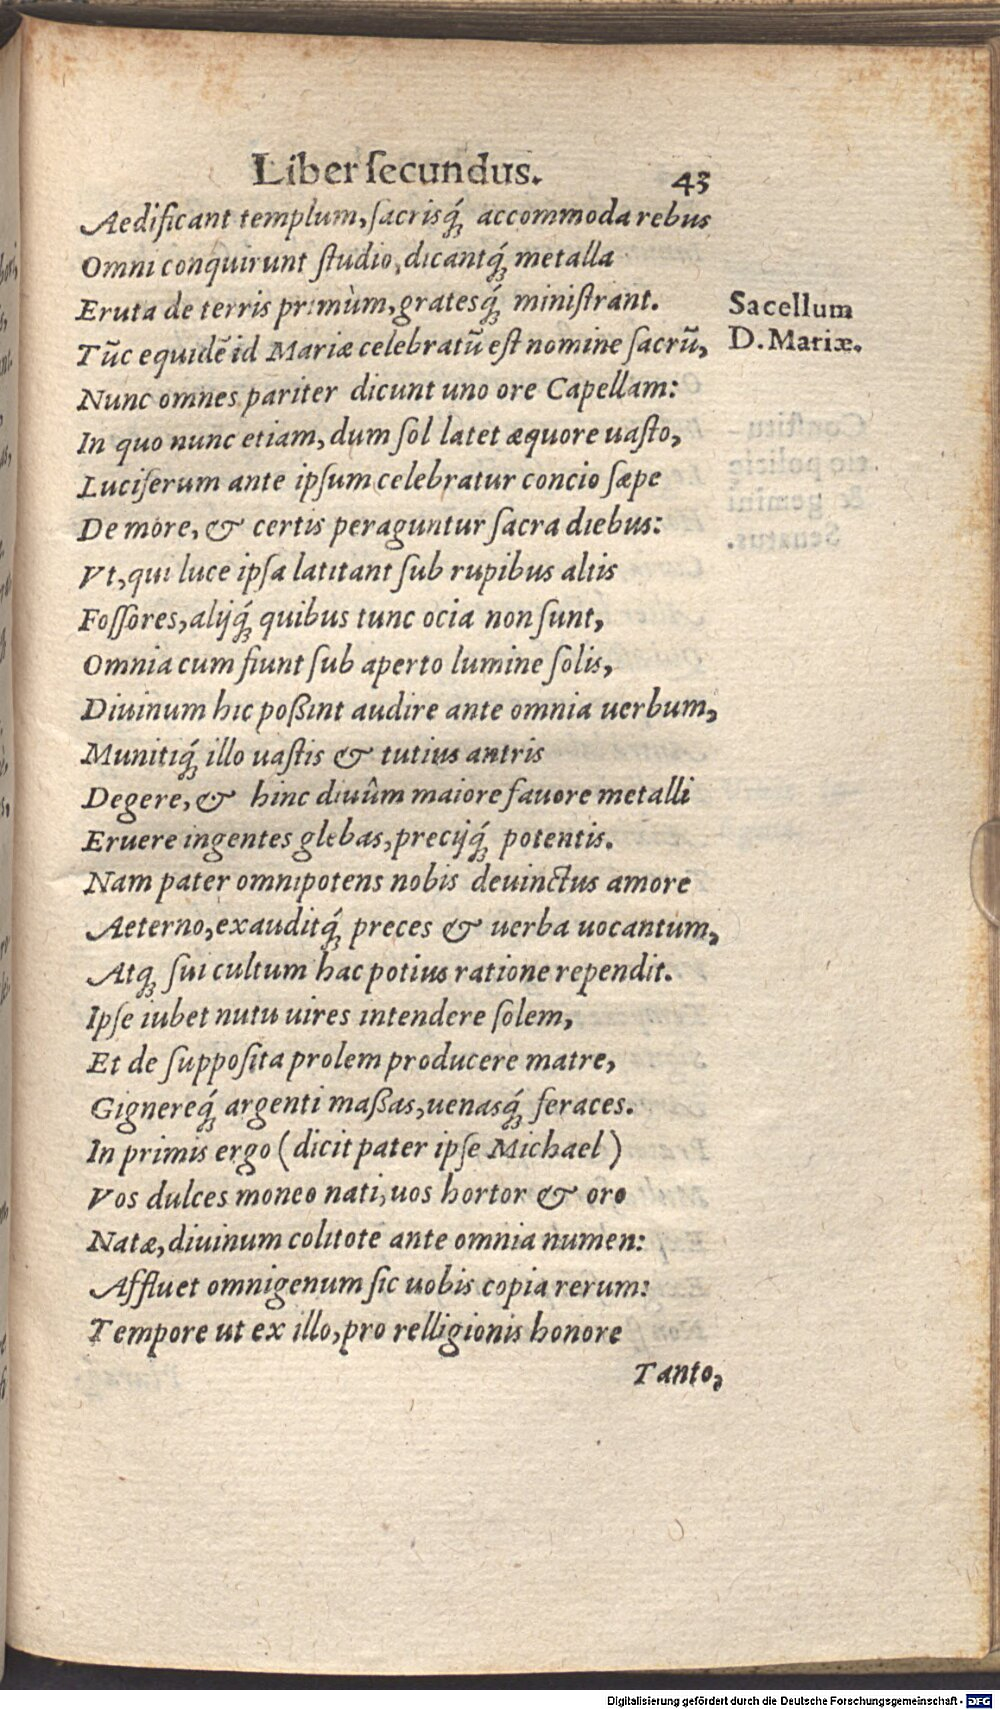 Liber ſecundus. 43
Aedificant templum, ſacrisq́ꝫ accommoda rebus
Omni conquirunt ſtudio, dicantq́ꝫ metalla
Eruta de terris primùm, gratesq́ꝫ miniſtrant.
Sacellum
D. Mariæ.
Tũc equidẽ id Mariæ celebratũ eſt nomine ſacrũ,
Nunc omnes pariter dicunt uno ore Capellam:
In quo nunc etiam, dum ſol latet æquore uaſto,
Luciferum ante ipſum celebratur concio ſæpe
De more, & certis peraguntur ſacra diebus:
Vt, qui luce ipſa latitant ſub rupibus altis
Foſſores, alijq́ꝫ quibus tunc ocia non ſunt,
Omnia cum fiunt ſub aperto lumine ſolis,
Diuinum hic poßint audire ante omnia uerbum,
Munitiq́ꝫ illo uaſtis & tutius antris
Degere, & hinc diuûm maiore fauore metalli
Eruere ingentes glebas, precijq́ꝫ potentis.
Nam pater omnipotens nobis deuinctus amore
Aeterno, exauditq́ꝫ preces & uerba uocantum,
Atqꝫ ſui cultum hac potius ratione rependit.
Ipſe iubet nutu uires intendere ſolem,
Et de ſuppoſita prolem producere matre,
Gignereq́ꝫ argenti maßas, uenasq́ꝫ feraces.
In primis ergo (dicit pater ipſe Michael)
Vos dulces moneo nati, uos hortor & oro
Natæ, diuinum colitote ante omnia numen:
Affluet omnigenum ſic uobis copia rerum:
Tempore ut ex illo, pro relligionis honore
Tanto,
Digitalisierung gefördert durch die Deutsche Forschungsgemeinschaft - DFG